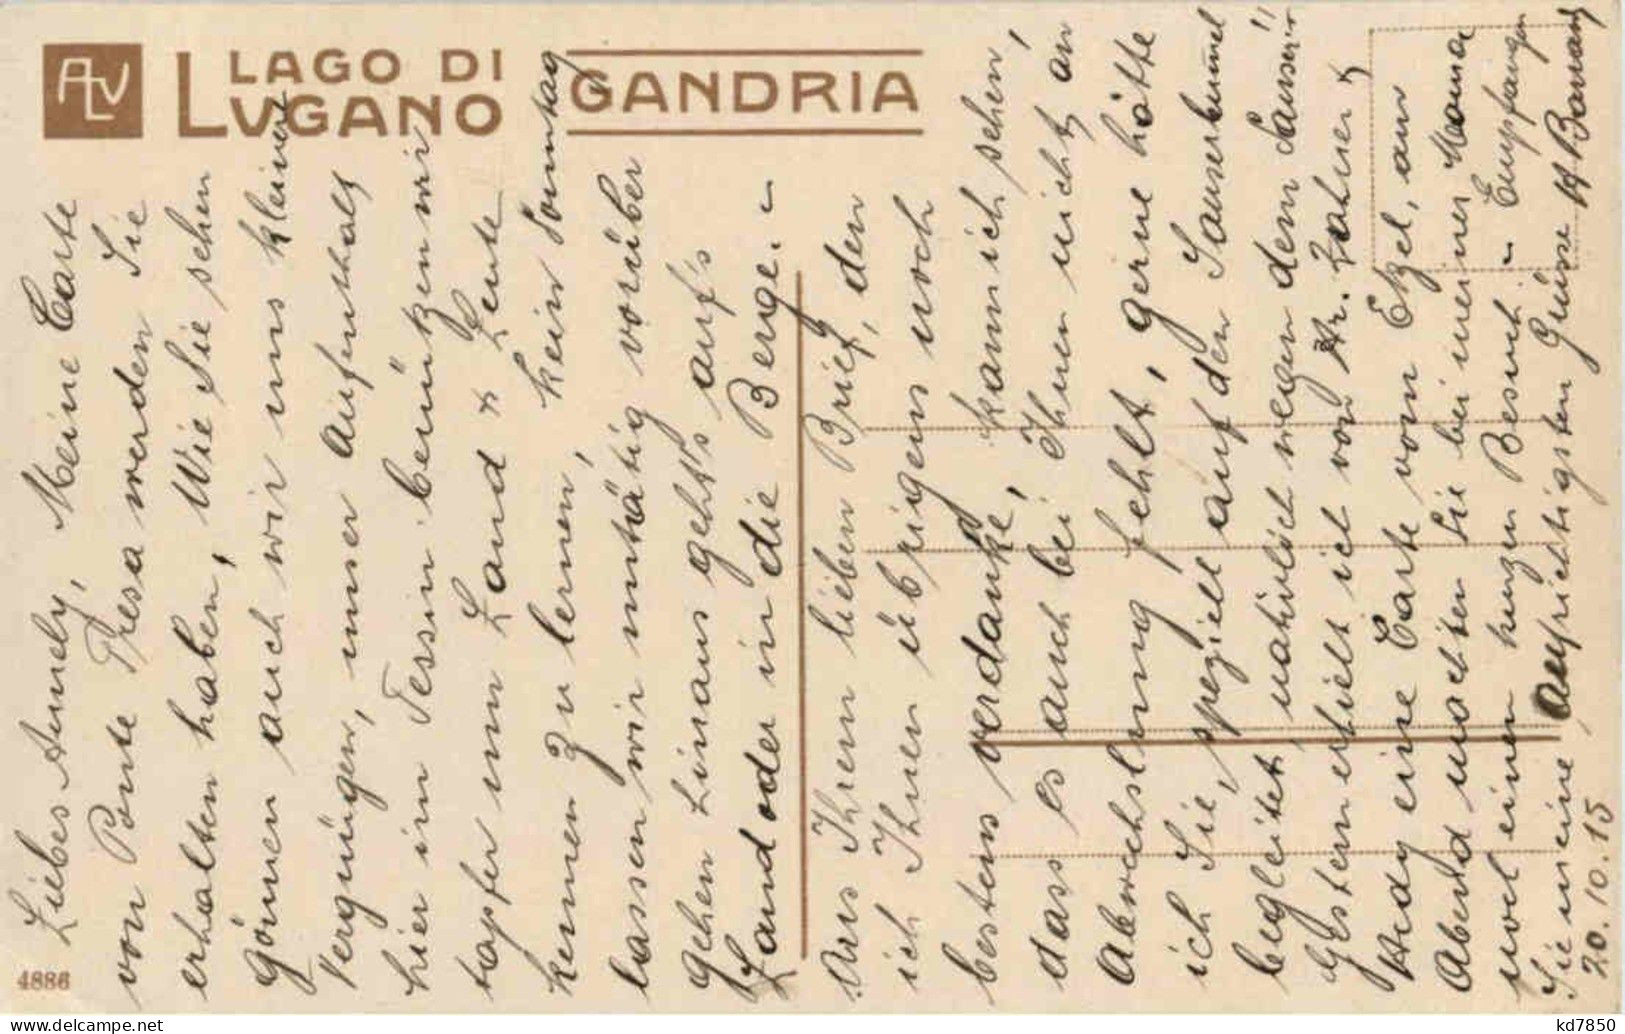 ALV
LAGO DI
LVGANO
GANDRIA
Liebes Annely, Meine Carte
von Ponte Tresa werden Sie
erhalten haben, Wie Sie sehen
gönnen auch wir uns kleiner
Vergnügen, unser Aufenthalt
hier im Tessin benützen wir
tapfer um Land & Leute
kennen zu lernen, kein Sonntag
lassen wir untätig vorüber
gehen hinaus gehts auf's
Land oder in die Berge. –
Aus Ihrem lieben Brief, den
ich Ihnen übrigens noch
bestens verdanke, kann ich sehen,
dass es auch bei Ihnen nicht an
Abwechslung fehlt, gerne hätte
ich Sie, speziell auf der Sauserbummel
begleitet, natürlich wegen dem Sauser!!
Gestern erhielt ich von Hr. Zahner &
Hedy eine Carte vom Etzel, am
Abend machten Sie bei meiner Mama
noch einen kurzen Besuch. – Empfangen
Sie meine aufrichtigsten Grüsse
20.10.15
4886
kd7850